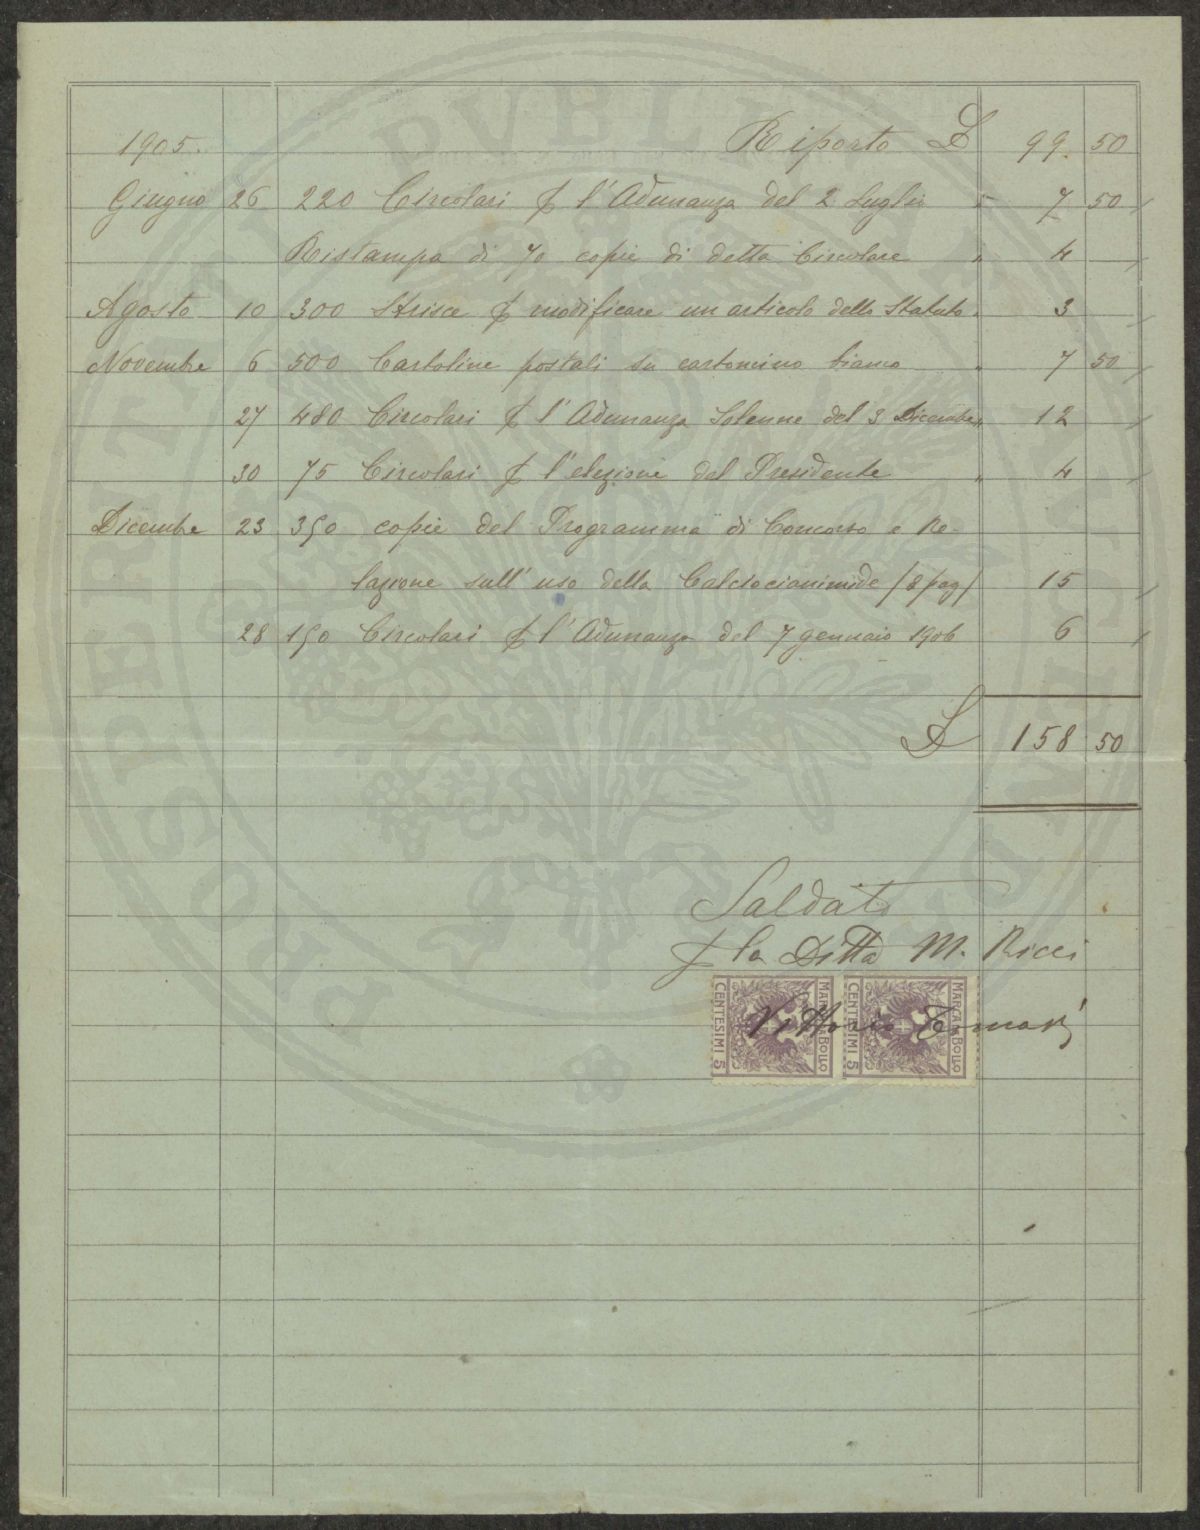 1905. Riporto £ 99. 50
Giugno 26 220 Circolari p l'Adunanza del 2 Luglio " 7 50
Ristampa di 70 copie di detta Circolare " 4
Agosto 10 300 Strisce p modificare un articolo dello Statuto " 3
Novembre 6 500 Cartoline postali su cartoncino bianco " 7 50
27 480 Circolari p l'Adunanza Solenne del 3 Dicembre " 12
30 75 Circolari p l'elezione del Presidente " 4
Dicembre 23 350 copie del Programma di Concorso e Re-
lazione sull'uso della Calciocianimide /8 pag/ 15
28 150 Circolari p l'Adunanza del 7 gennaio 1906 6
£ 158 50
Saldato
p la Ditta M. Ricci
Vittorio
MARCA DA BOLLO
CENTESIMI 5
MARCA DA BOLLO
CENTESIMI 5
PROSPERITATI PVBLICAE AVGENDAE